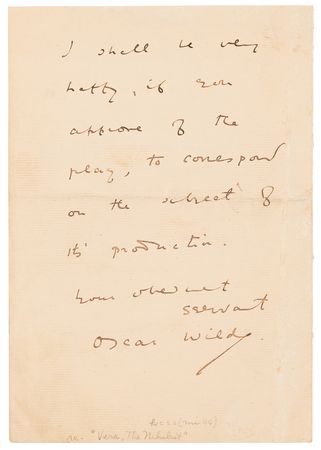 I shall be very
happy, if you
approve of the
play, to correspond
on the subject of
its production.
Your obedient
servant
Oscar Wilde.
re. "Vera, The Nihilist"